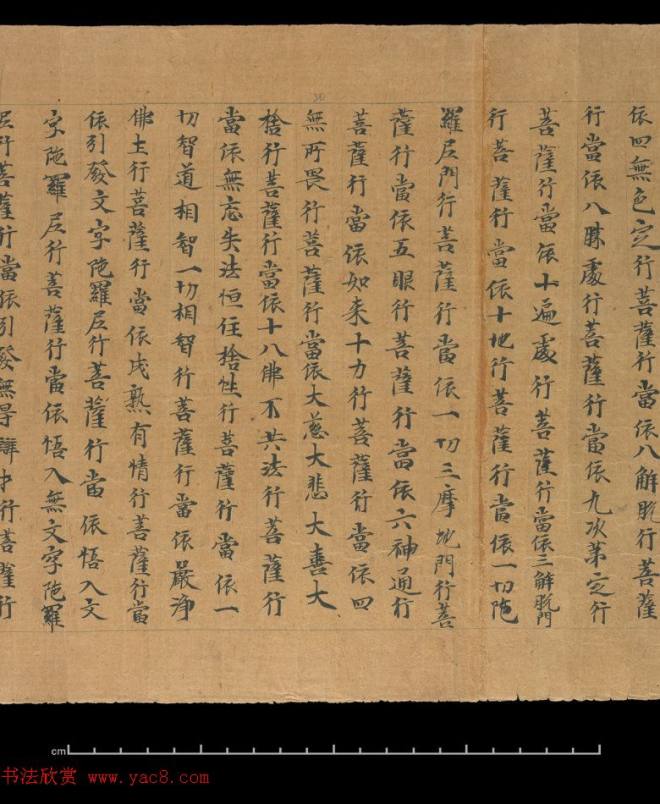 依四無色定行菩薩行當依八解脫行菩薩
行當依八勝處行菩薩行當依九次第定行
菩薩行當依十遍處行菩薩行當依三解脫門
行菩薩行當依十地行菩薩行當依一切陁
羅尼門行菩薩行當依一切三摩地門行菩
薩行當依五眼行菩薩行當依六神通行
菩薩行當依如来十力行菩薩行當依四
無所畏行菩薩行當依大慈大悲大喜大
捨行菩薩行當依十八佛不共法行菩薩行
當依無忘失法恒住捨性行菩薩行當依一
切智道相智一切相智行菩薩行當依嚴淨
佛土行菩薩行當依成熟有情行菩薩行當
依引發文字陁羅尼行菩薩行當依悟入文
字陁羅尼行菩薩行當依悟入無文字陁羅
尼行菩薩行當依引發無㝵辯才行菩薩行
cm
书法欣赏 www.yac8.com